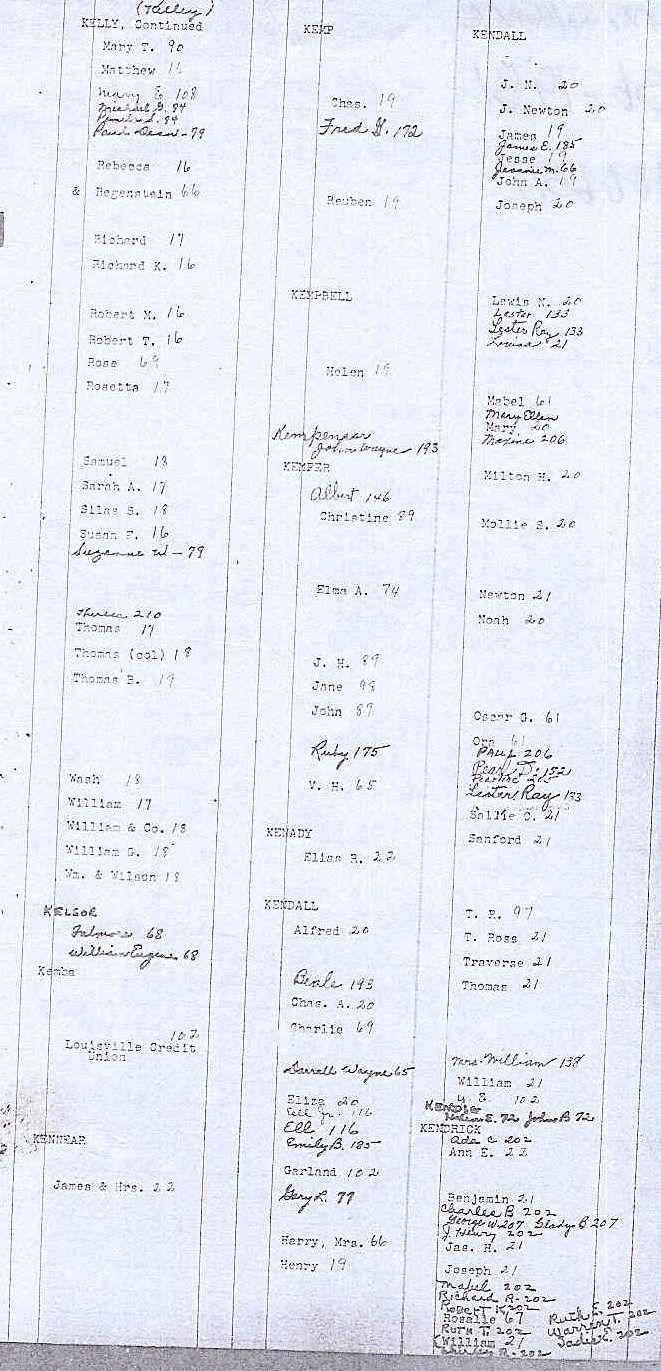 (Kelley)
KELLY, Continued
Mary T. 90
Matthew 16
Mary E 108
Michael G. 84
84
Paul Dean - 79
Rebecca 16
& Regenstein 66
Richard 17
Richard K. 16
Robert M. 16
Robert T. 16
Rose 69
Rosetta 17
Samuel 18
Sarah A. 17
Silas S. 18
Susan F. 16
Suzanne W - 79
Theresa 210
Thomas 17
Thomas (col) 18
Thomas B. 19
Wash 18
William 17
William & Co. 18
William G. 18
Wm. & Wilson 18
KELSOR
68
William Eugene 68
Kemba
102
Louisville Credit
Union
KENNEAR
James & Mrs. 22
KEMP
Chas. 19
Fred G. 172
Reuben 19
KEMPBELL
Helen 19
Kempenear
John Wayne 193
KEMPER
Albert 146
Christine 89
Elma A. 74
J. H. 89
Jane 98
John 89
Ruby 175
V. H. 65
KENADY
Elias R. 22
KENDALL
Alfred 20
Beale 193
Chas. A. 20
Charlie 69
Darrell Wayne 65
Eliza 20
Ell Jr. 116
Ell 116
Emily B. 185
Garland 102
Gary L. 77
Harry, Mrs. 66
Henry 19
KENDALL
J. N. 20
J. Newton 20
James 19
James E. 185
Jesse 19
Jeannie M. 66
John A. 19
Joseph 20
Lewis N. 20
Lester 133
Lester Ray 133
Louisa 21
Mabel 61
Mary Ellen
Mary 20
Maxine 206
Milton H. 20
Mollie S. 20
Newton 21
Noah 20
Oscar G. 61
Ora 61
PAUL 206
Pearl D. 152
Lester Ray 133
Sallie C. 21
Sanford 21
T. R. 97
T. Ross 21
Traverse 21
Thomas 21
Mrs. William 138
William 21
102
E. 72 John B 72
KENDRICK
Ada C 202
Ann E. 22
Benjamin 21
Charles B 202
George W 207 Gladys B 207
J. Henry 202
Jas. H. 21
Joseph 21
Mabel 202
Richard R - 202
Robert K 202
Rosalie 67 Ruth E. 202
Ruth T. 202 Warren T. 202
William 21 Sadie E. 202
R. 202